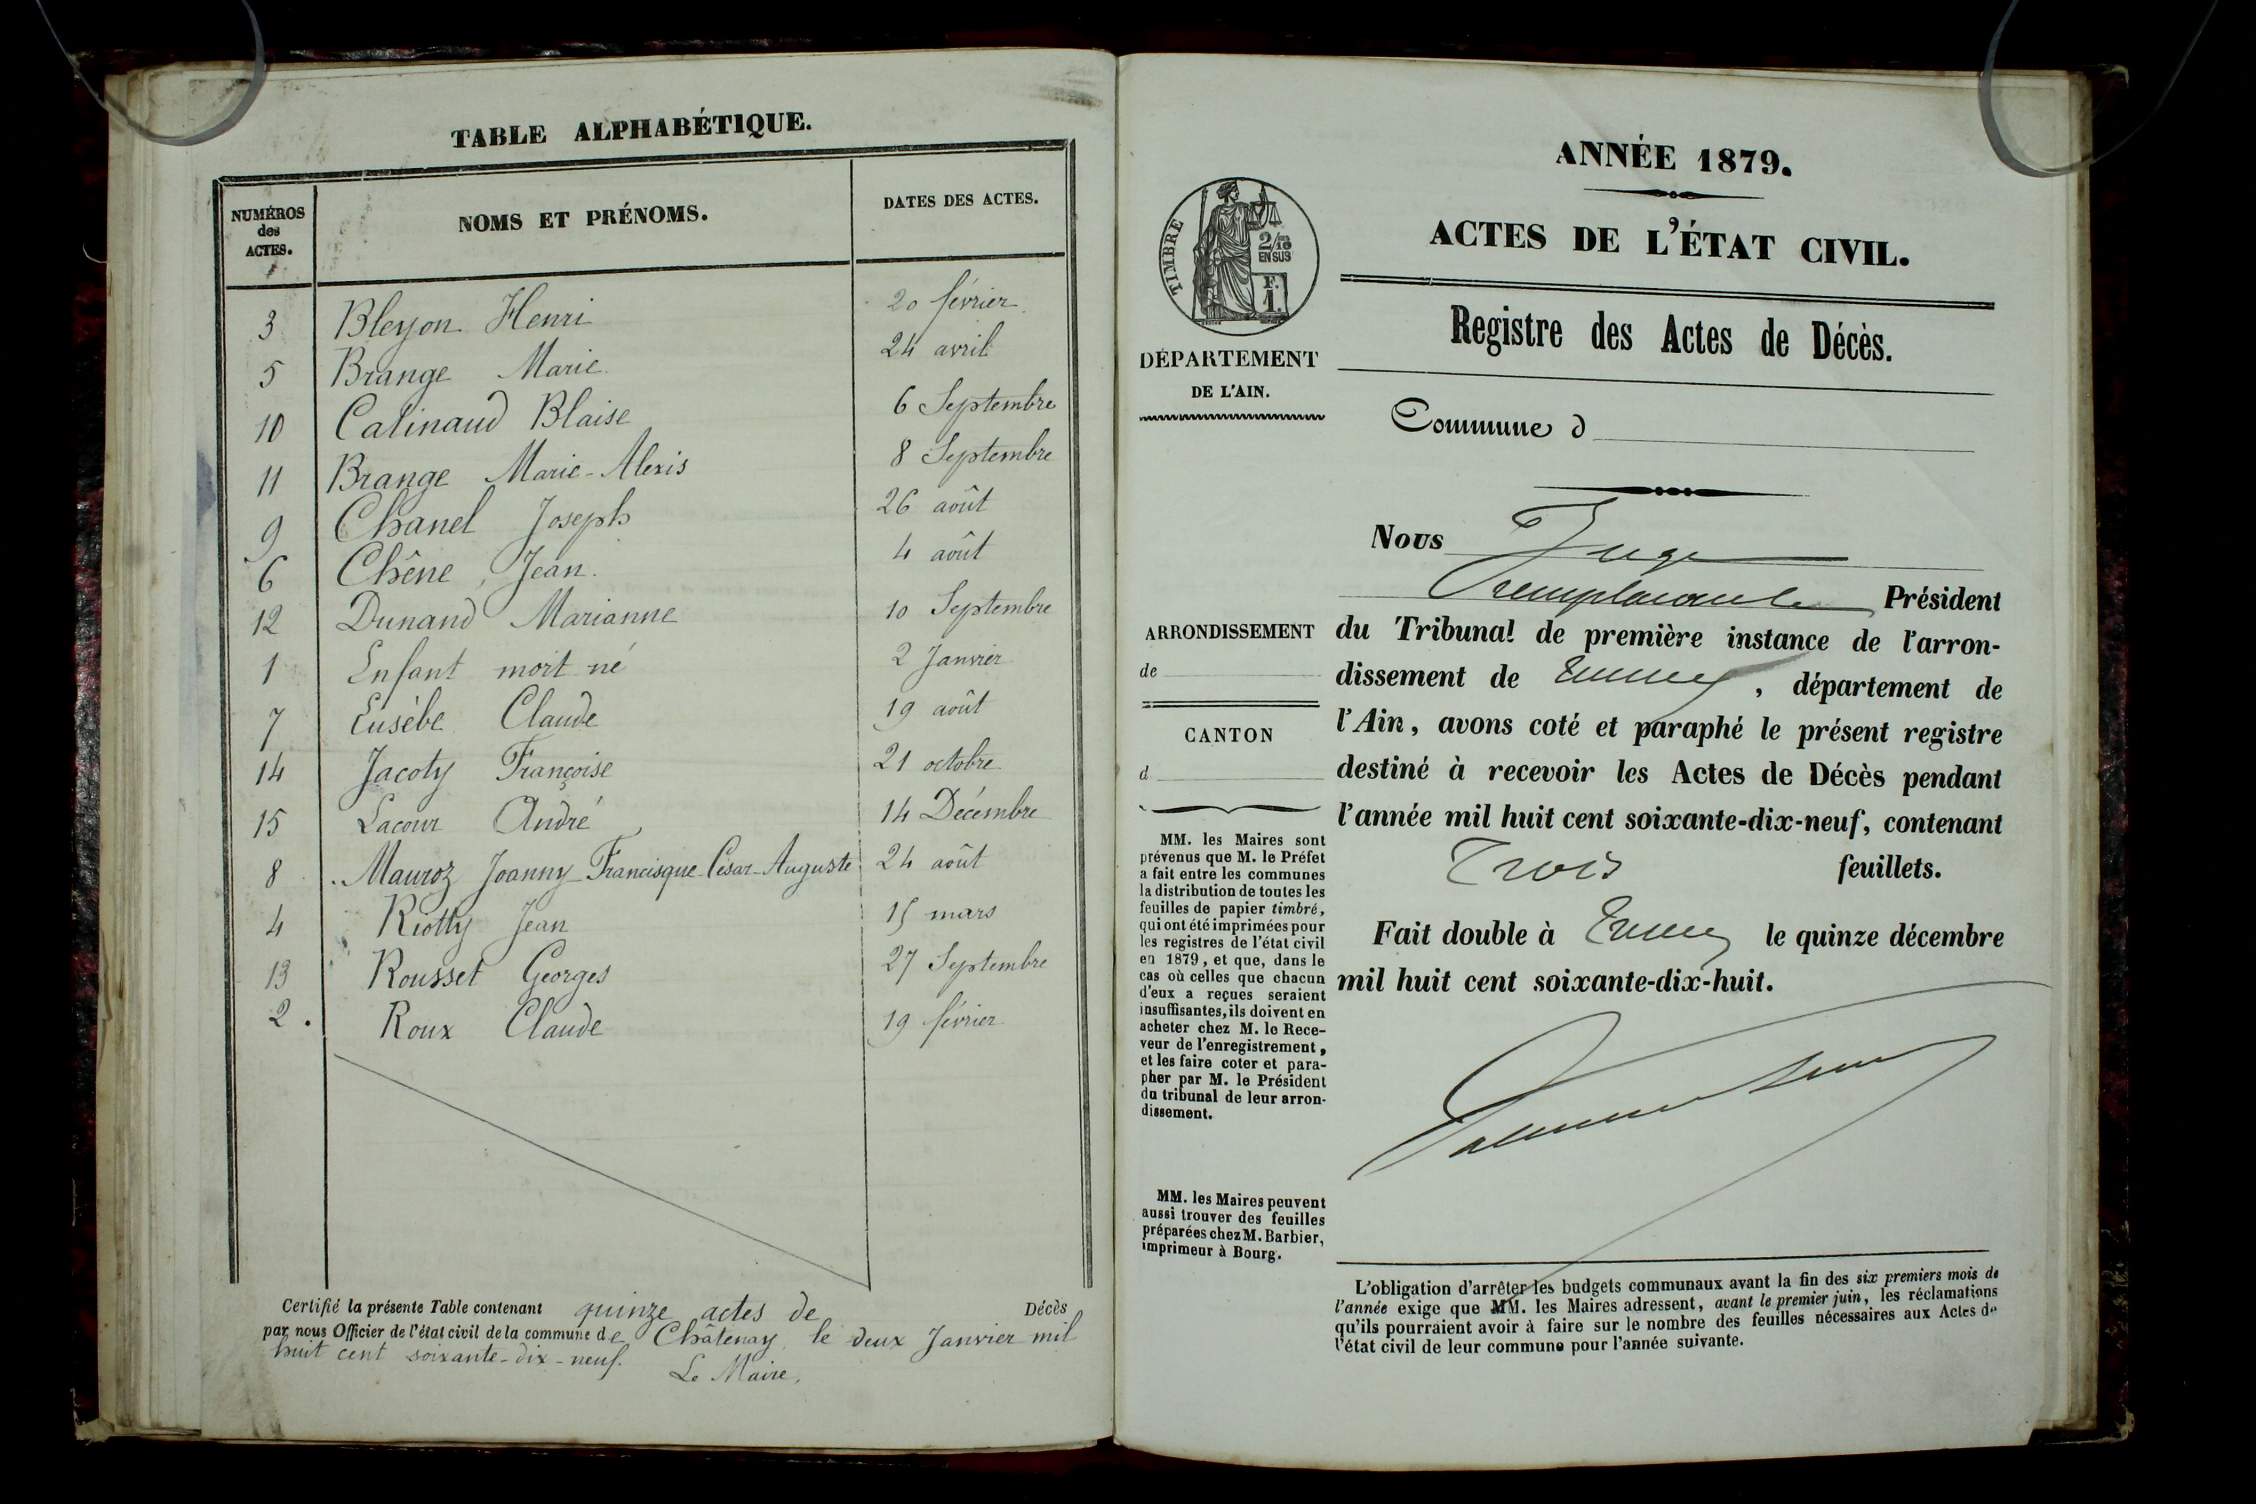 TABLE ALPHABÉTIQUE.
NUMÉROS des ACTES. NOMS ET PRÉNOMS. DATES DES ACTES.
3 Bleyon Henri 20 février
5 Brange Marie 24 avril
10 Catinaud Blaise 6 Septembre
11 Brange Marie-Alexis 8 Septembre
9 Chanel Joseph 26 août
6 Chêne Jean 4 août
12 Dunand Marianne 10 Septembre
1 Enfant mort-né 2 Janvier
7 Eusèbe Claude 19 août
14 Jacoty Françoise 21 octobre
15 Lacour André 14 Décembre
8 Mauroz Joanny-Francisque-César-Auguste 24 août
4 Riotty Jean 15 mars
13 Rousset Georges 27 Septembre
2. Roux Claude 19 février
Certifié la présente Table contenant quinze actes de Décès
par nous Officier de l'état civil de la commune de Châtenay, le deux Janvier mil
huit cent soixante-dix-neuf.
Le Maire,
ANNÉE 1879.
ACTES DE L'ÉTAT CIVIL.
TIMBRE
2/10
EN SUS
F.
1.
DÉPARTEMENT
DE L'AIN.
Registre des Actes de Décès.
Commune d
ARRONDISSEMENT
de
CANTON
d
MM. les Maires sont
prévenus que M. le Préfet
a fait entre les communes
la distribution de toutes les
feuilles de papier timbré,
qui ont été imprimées pour
les registres de l'état civil
en 1879, et que, dans le
cas où celles que chacun
d'eux a reçues seraient
insuffisantes, ils doivent en
acheter chez M. le Rece-
veur de l'enregistrement,
et les faire coter et para-
pher par M. le Président
du tribunal de leur arron-
dissement.
MM. les Maires peuvent
aussi trouver des feuilles
préparées chez M. Barbier,
imprimeur à Bourg.
Nous Juge
remplaçant le Président
du Tribunal de première instance de l'arron-
dissement de , département de
l'Ain, avons coté et paraphé le présent registre
destiné à recevoir les Actes de Décès pendant
l'année mil huit cent soixante-dix-neuf, contenant
Trois feuillets.
Fait double à le quinze décembre
mil huit cent soixante-dix-huit.
L'obligation d'arrêter les budgets communaux avant la fin des six premiers mois de
l'année exige que MM. les Maires adressent, avant le premier juin, les réclamations
qu'ils pourraient avoir à faire sur le nombre des feuilles nécessaires aux Actes de
l'état civil de leur commune pour l'année suivante.